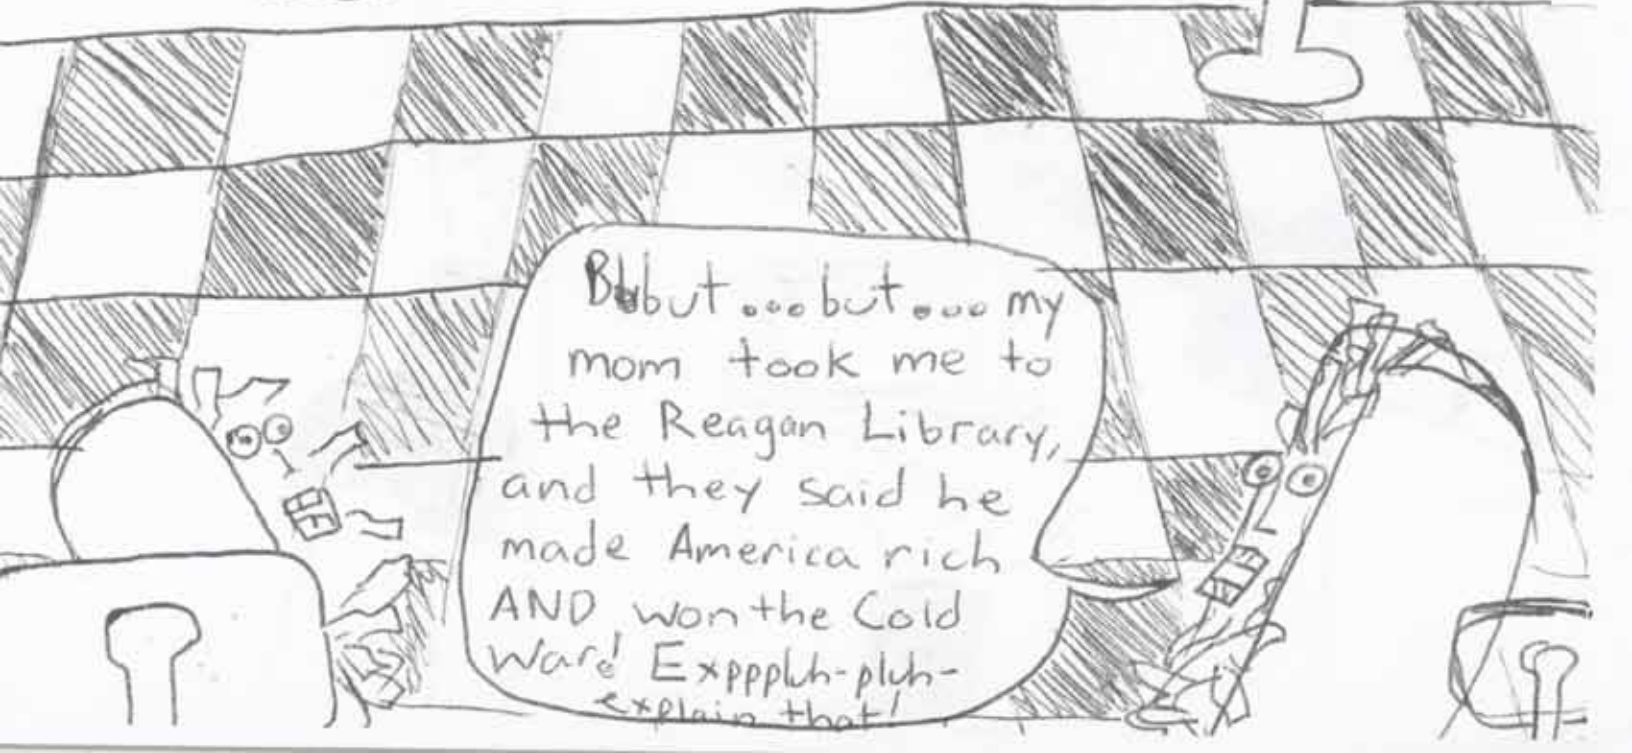 Bbbut...but...my
mom took me to
the Reagan Library,
and they said he
made America rich
AND won the Cold
War! Expppluh-pluh-
explain that!